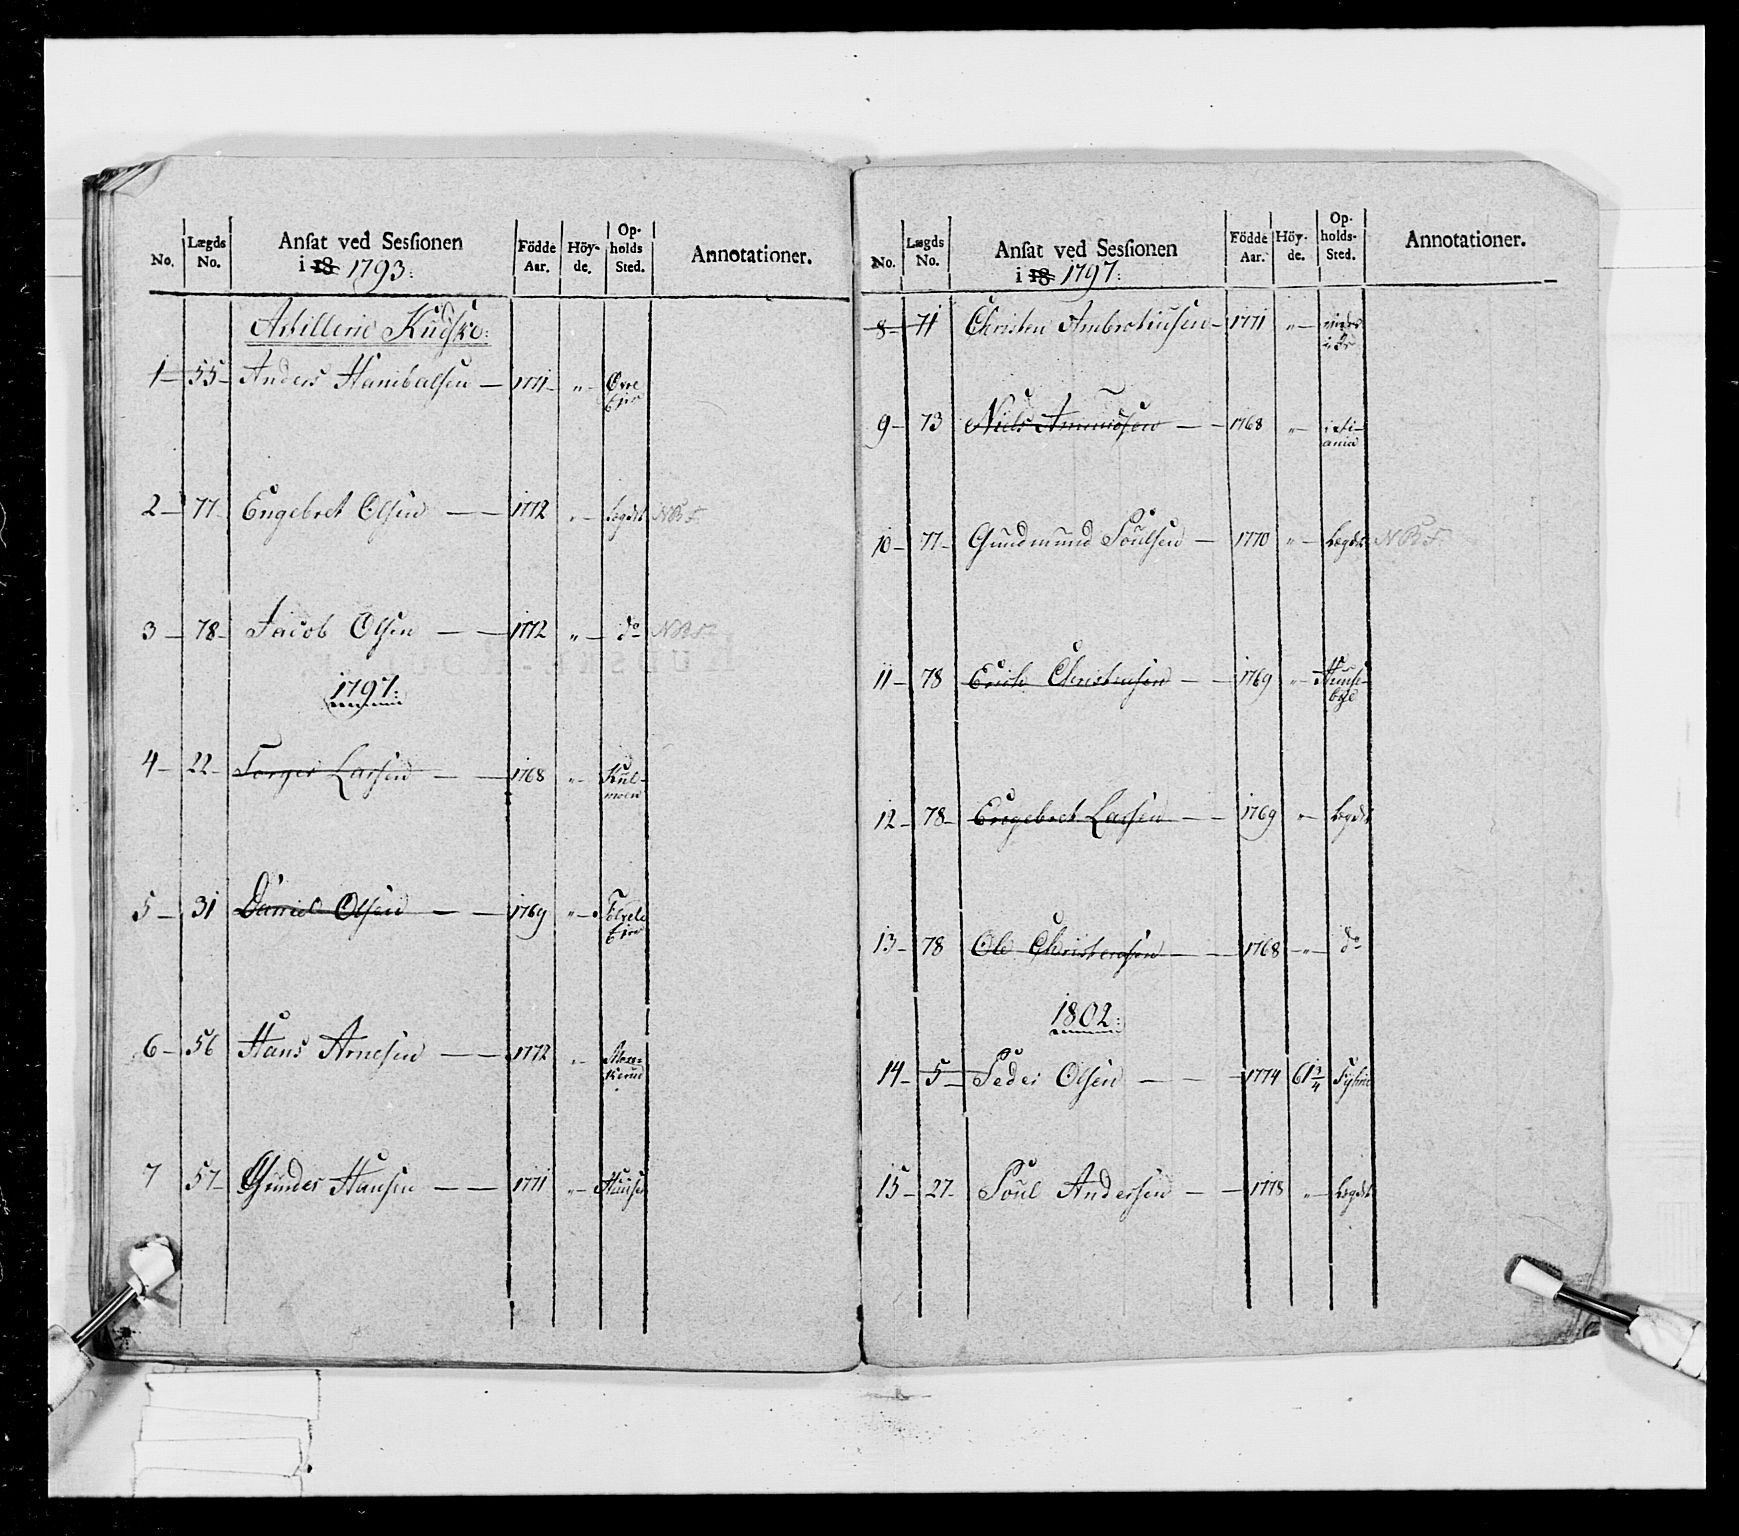 No. Lægds No. Ansat ved Sessionen i 18 1793: Födde Aar. Höyde. Opholds Sted. Annotationer.
Artillerie Kudske:
1 — 55 — Anders Hanibalsen — 1771 — " — Øvre Eier
2 — 77 — Engebret Olsen — — 1772 " — Lægdet NB T.
3 — 78 — Jacob Olsen — — 1772 " — do
1797:
4 — 22 — Torger Larsen — — 1768 " —
5 — 31 Daniel Olsen — — 1769 " —
6 — 56 Hans Arnesen — — 1772 " —
7 57 — Gunder Hansen — — 1771 " —
No. Lægds No. Ansat ved Sessionen i 18 1797: Födde Aar. Höyde. Opholds-Sted. Annotationer.
8 — 71 Christen Ambrosiusen — 1771 " —
9 — 73 Niels — — 1768 " —
10 — 77 — Gundmund Poulsen — 1770 " — Lægdet
11 — 78 Erich Christensen — — 1769 " —
12 — 78 — Engebret Larsen — — 1769 " — Lægdet
13 — 78 Ole Christensen — — 1768 — " — do
1802:
14 — 5 — Peder Olsen — — 1774 61 3/4
15 — 27 — Poul Andersen — — 1778 " — Lægdet